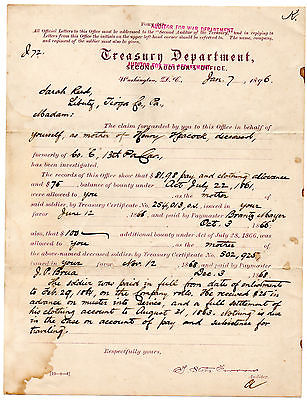 K.
AUDITOR FOR WAR DEPARTMENT
All Official Letters to this Office must be addressed to the "Second Auditor of the Treasury," and in replying to
Letters from this Office the initials on upper left hand corner should be referred to. The name, company,
and regiment of the soldier must also be given.
J 72.
Treasury Department,
SECOND AUDITOR'S OFFICE.
Washington, D. C., Jan. 7, 1896
Sarah
Liberty, Tioga Co, Pa.
Madam:
The claim forwarded by you to this Office in behalf of
yourself, as mother of Henry deceased,
formerly of Co. 13th Pa Cav.
has been investigated.
The records of this Office show that $81.98 pay and clothing allowance
and $76 balance of bounty under Act July 22, 1861,
were allowed to you as the mother
of said soldier, by Treasury Certificate No. 254,018, issued in your
favor June 12 1866 and paid by Paymaster Brantz Mayer
Oct. 3 1866;
also $100 additional bounty under Act of July 28, 1866, was
allowed to you as the mother
of said deceased soldier, by Treasury Certificate No. 502,925,
issued in your favor Nov. 12 1868 and paid by Paymaster
J. P. Brua Dec. 3 1868
The soldier was paid in full from date of enlistment
to Feb. 29, 1864, on the Company rolls. He received $25 in
advance on muster into service, and a full settlement of
his clothing account to August 31, 1863. Nothing is due
in the case on account of pay and subsistence for
traveling.
Respectfully yours,